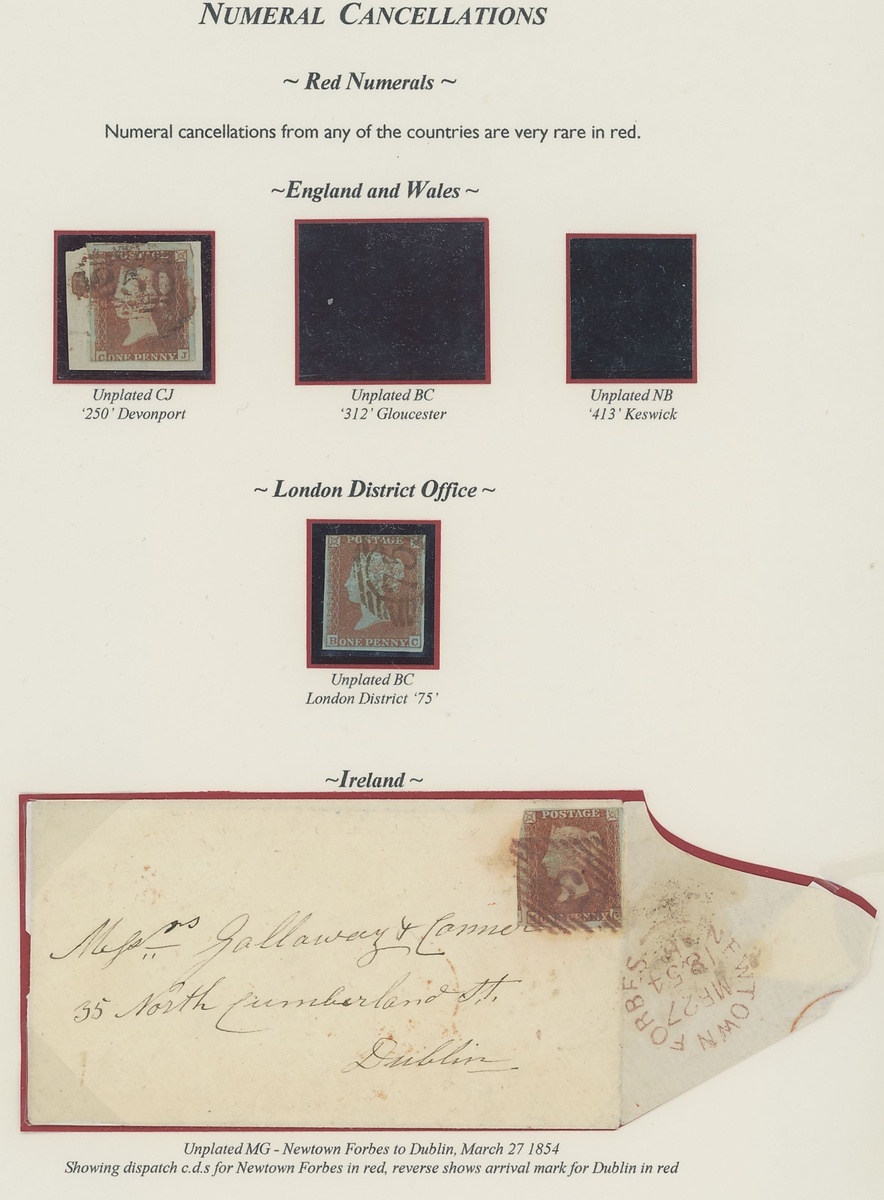 NUMERAL CANCELLATIONS
~ Red Numerals ~
Numeral cancellations from any of the countries are very rare in red.
~England and Wales ~
POSTAGE
250
C ONE PENNY J
Unplated CJ
‘250’ Devonport
Unplated BC
‘312’ Gloucester
Unplated NB
‘413’ Keswick
~ London District Office ~
POSTAGE
75
B ONE PENNY C
Unplated BC
London District ‘75’
~Ireland ~
POSTAGE
ONE PENNY
Messrs Gallaway & Connor
35 North Cumberland St.
Dublin
NEWTOWN FORBES
MR27
1854
Unplated MG - Newtown Forbes to Dublin, March 27 1854
Showing dispatch c.d.s for Newtown Forbes in red, reverse shows arrival mark for Dublin in red